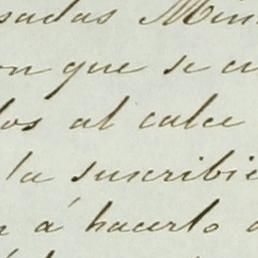 sadas Min
on que se
los al calce
la suscribie
á hacerlo